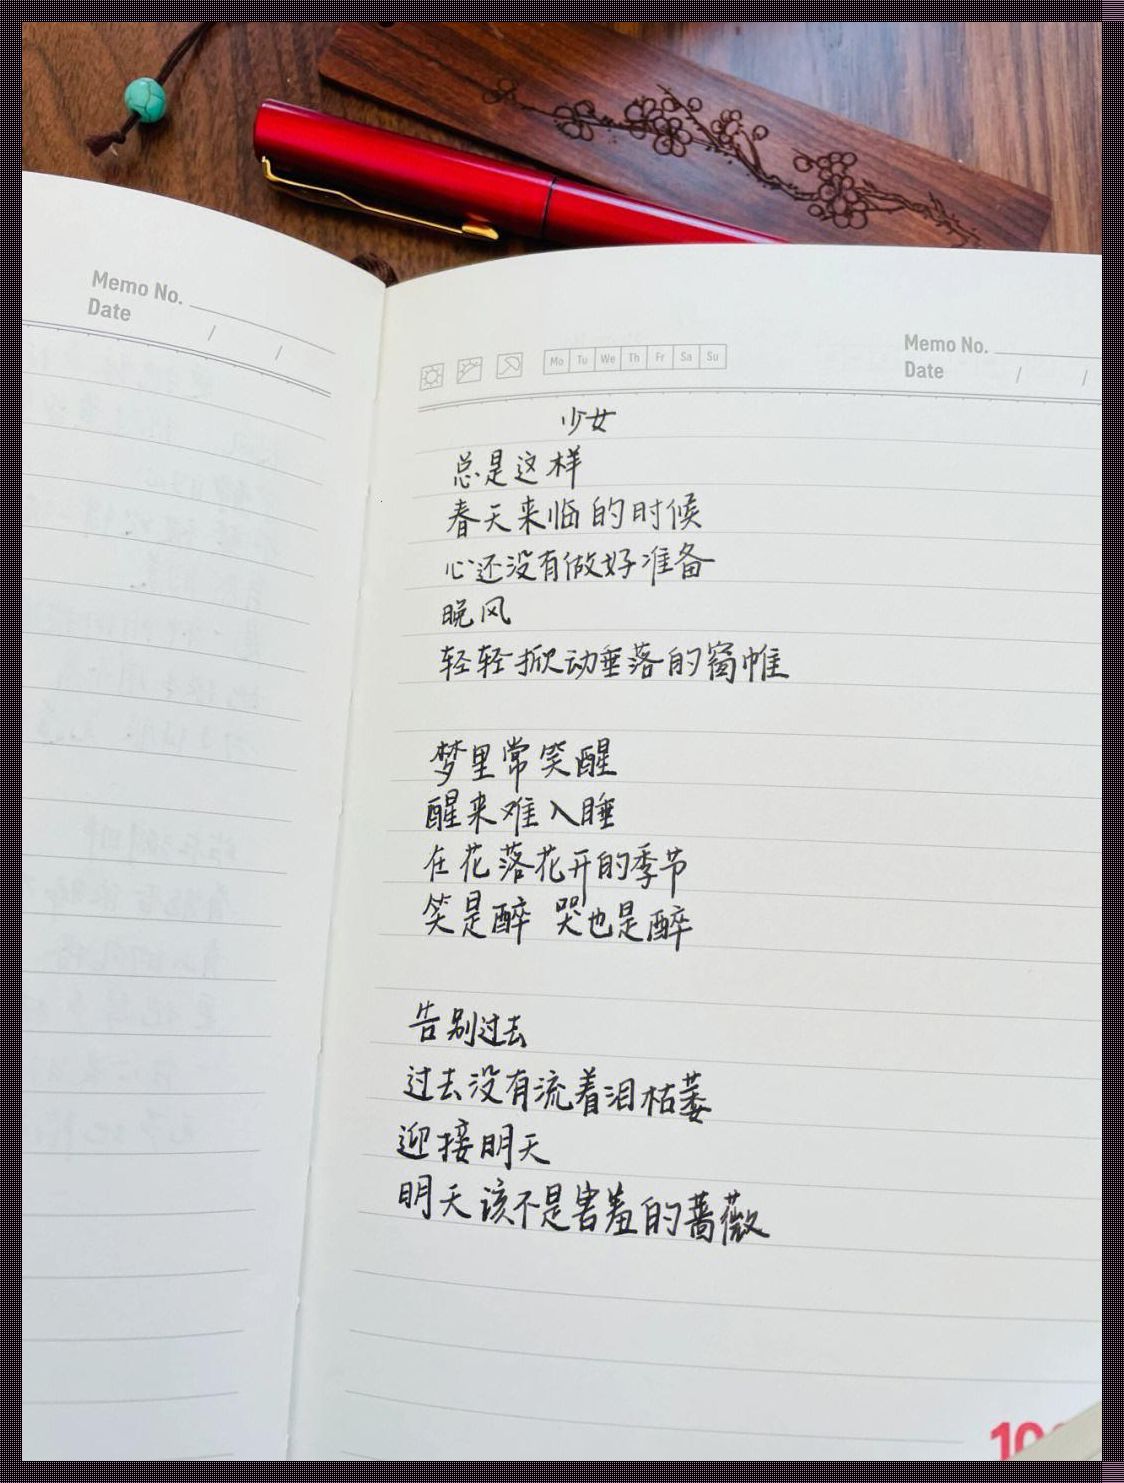 Memo No.
Date / /
Mo Tu We Th Fr Sa Su
Memo No.
Date / /
少女
总是这样
春天来临的时候
心还没有做好准备
晚风
轻轻掀动垂落的窗帷
梦里常笑醒
醒来难入睡
在花落花开的季节
笑是醉 哭也是醉
告别过去
过去没有流着泪枯萎
迎接明天
明天该不是害羞的蔷薇